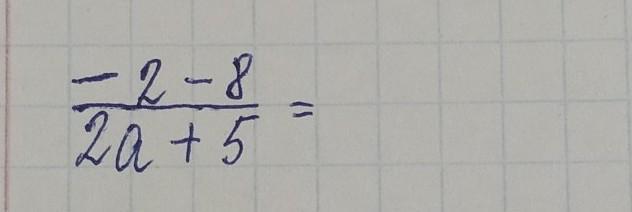 - 2 - 8
2a + 5 =